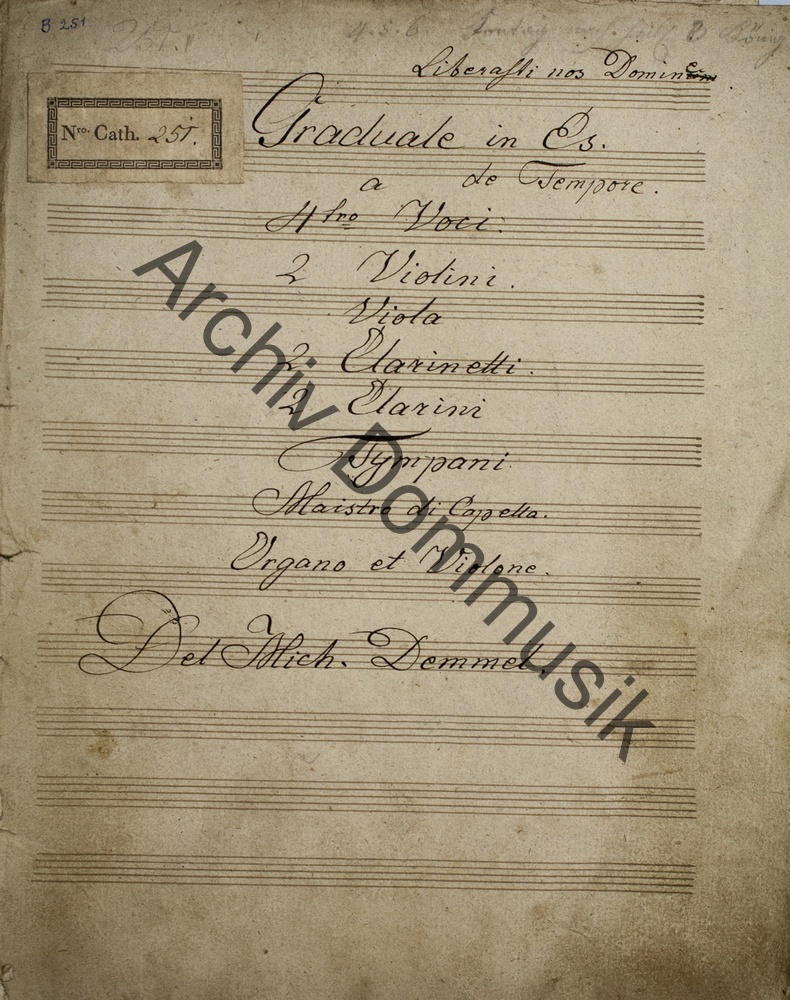 B 251
251.
4. 5. 6. Sontag nach
Liberasti nos Domine
Nro. Cath. 251.
Graduale in Es.
a de Tempore.
4tro Voci.
2 Violini.
Viola
2 Clarinetti.
2 Clarini
Tympani
Maistro di Capella.
Organo et Violone.
Del Mich. Demmel.
Archiv Dommusik